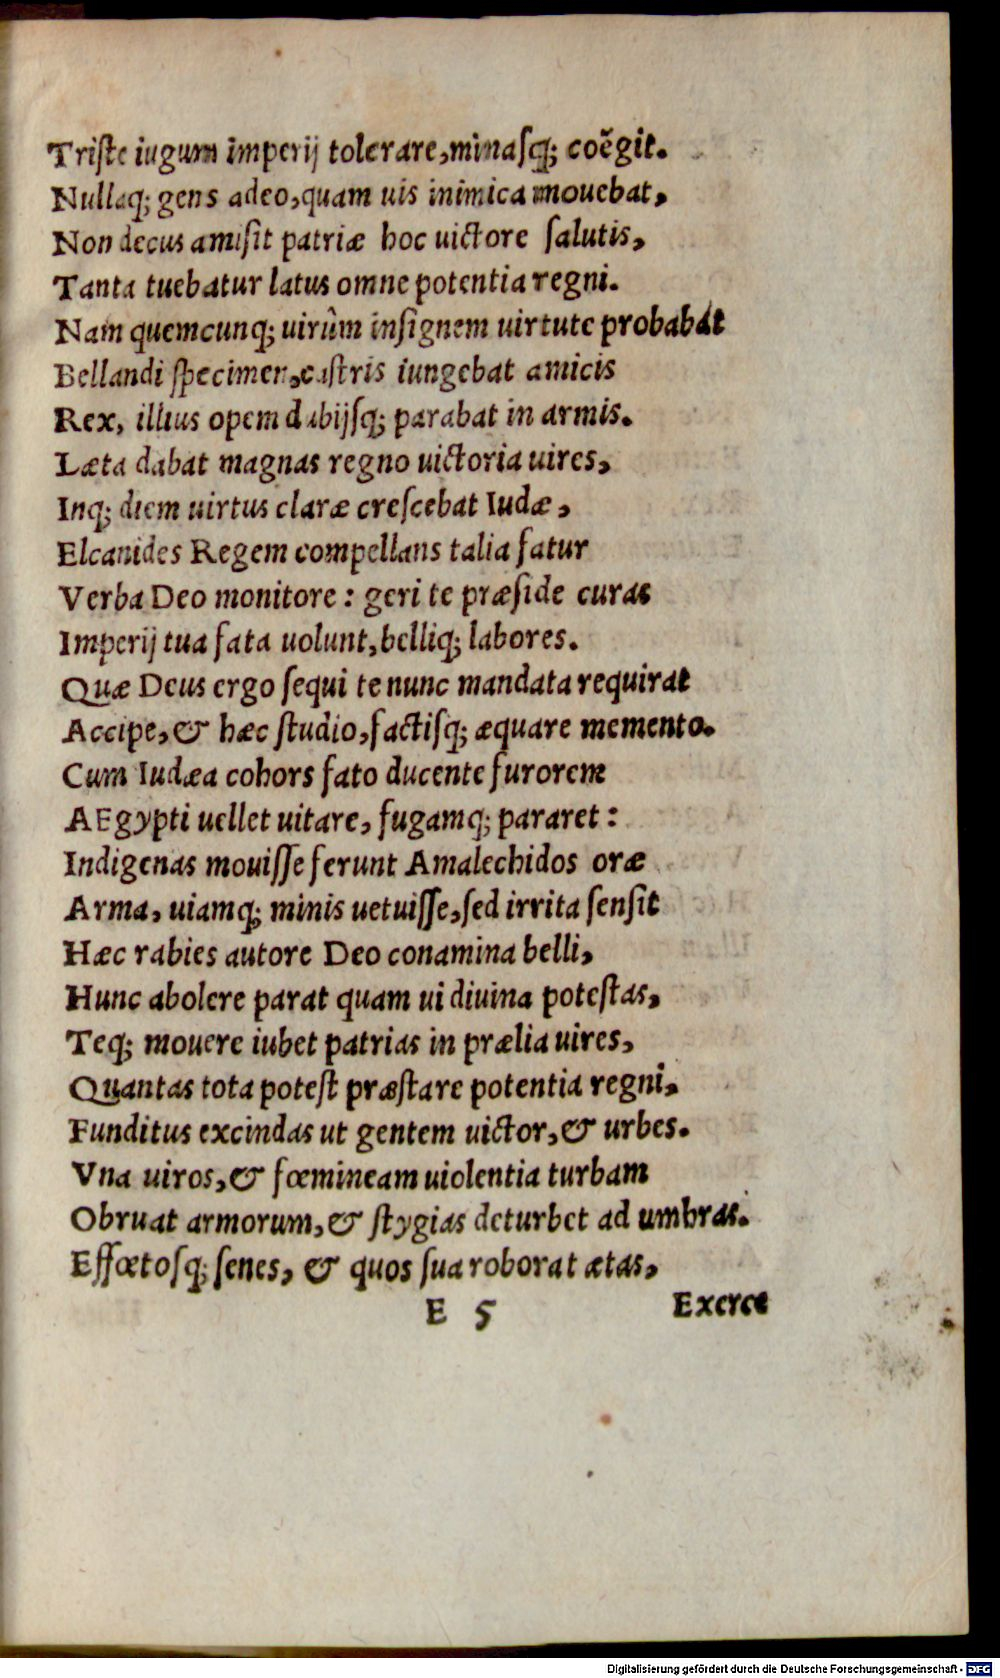 Triſte iugum imperij tolerare, minaſq; coëgit.
Nullaq; gens adeo, quam uis inimica mouebat,
Non decus amiſit patriæ hoc uictore ſalutis,
Tanta tuebatur latus omne potentia regni.
Nam quemcunq; uirûm inſignem uirtute probabát
Bellandi ſpecimen, caſtris iungebat amicis
Rex, illius opem dubijſq; parabat in armis.
Læta dabat magnas regno uictoria uires,
Inq; diem uirtus claræ creſcebat Iudæ,
Elcanides Regem compellans talia fatur
Verba Deo monitore: geri te præſide curas
Imperij tua fata uolunt, belliq; labores.
Quæ Deus ergo ſequi te nunc mandata requirat
Accipe, & hæc ſtudio, factiſq; æquare memento.
Cum Iudæa cohors fato ducente furorem
AEgypti uellet uitare, fugamq; pararet:
Indigenas mouiſſe ferunt Amalechidos oræ
Arma, uiamq; minis uetuiſſe, ſed irrita ſenſit
Hæc rabies autore Deo conamina belli,
Hunc abolere parat quam ui diuina poteſtas,
Teq; mouere iubet patrias in prælia uires,
Quantas tota poteſt præſtare potentia regni,
Funditus excindas ut gentem uictor, & urbes.
Vna uiros, & fœmineam uiolentia turbam
Obruat armorum, & ſtygias deturbet ad umbras.
Effœtoſq; ſenes, & quos ſua roborat ætas,
E 5 Exerce
Digitalisierung gefördert durch die Deutsche Forschungsgemeinschaft - DFG